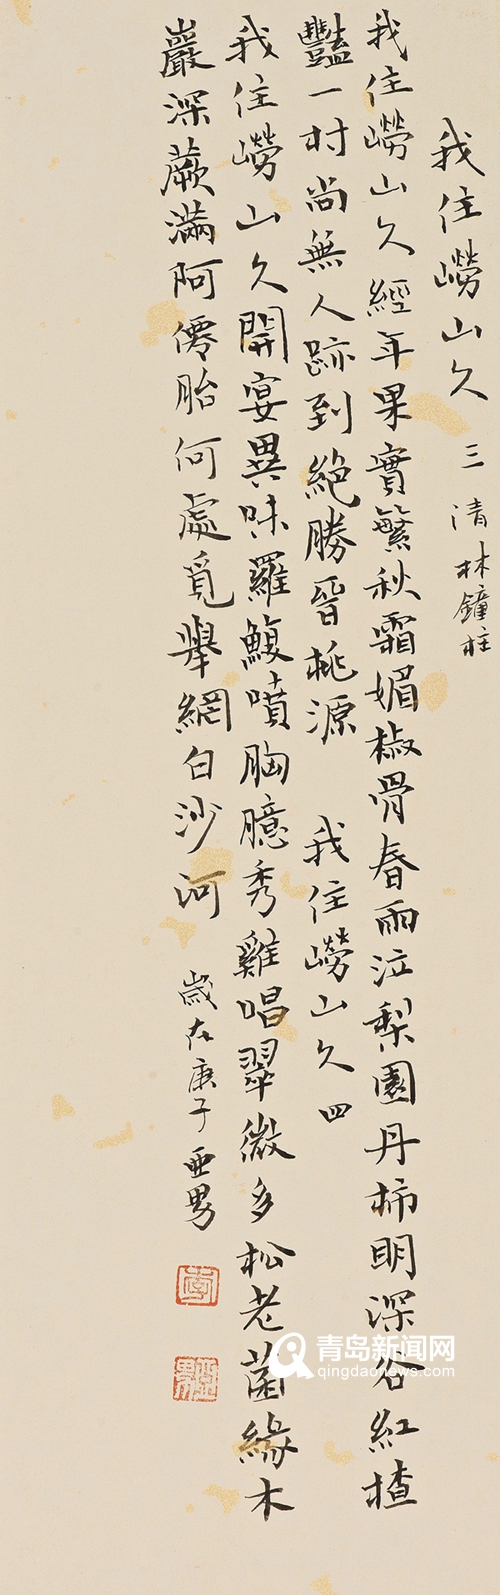 我住嶗山久 三 清 林鐘柱
我住嶗山久經年果實繁秋霜媚椒骨春雨泣梨園丹柿明深谷紅楂
豔一村尚無人跡到絕勝晉桃源 我住嶗山久 四
我住嶗山久開宴異味羅鰒噴胸臆秀雞唱翠微多松老菌緣木
巖深蕨滿阿僊胎何處覓舉網白沙河 歲在庚子 亞男
李
亞男
青岛新闻网
qingdaonews.com